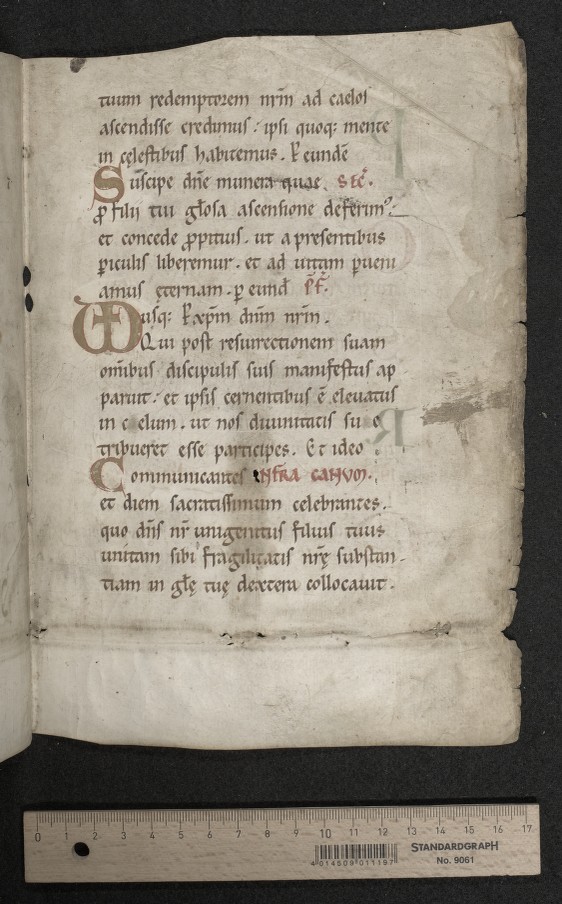 tuum redemptorem nr̄m ad caelos
ascendisse credimus. ipsi quoq; mente
in cęlestibus habitemus. P eundē
Suscipe dn̄e munera quae SEC̄.
ꝓ filii tui gl̄osa ascensione deferim᷒.
et concede ꝓpitius. ut a presentibus
ꝑiculis liberemur. et ad uitam ꝑueni
amus ęternam. ꝑ eund̄ P̄F.
usq; P xp̄m dn̄m nr̄m.
Qui post resurrectionem suam
omībus discipulis suis manifestus ap
paruit. et ipsis cernentibus ē eleuatus
in c elum. ut nos diuinitatis su e
tribueret esse participes. Et ideo
Communicantes INFRA CANON.
et diem sacratissimum celebrantes.
quo dn̄s nr̄ unigenitus filius tuus
unitam sibi fragilitatis nr̄ę substan-
tiam in gl̄ę tuę dextera collocauit.
0 1 2 3 4 5 6 7 8 9 10 11 12 13 14 15 16 17
STANDARDGRAPH
No. 9061
4 014509 011197